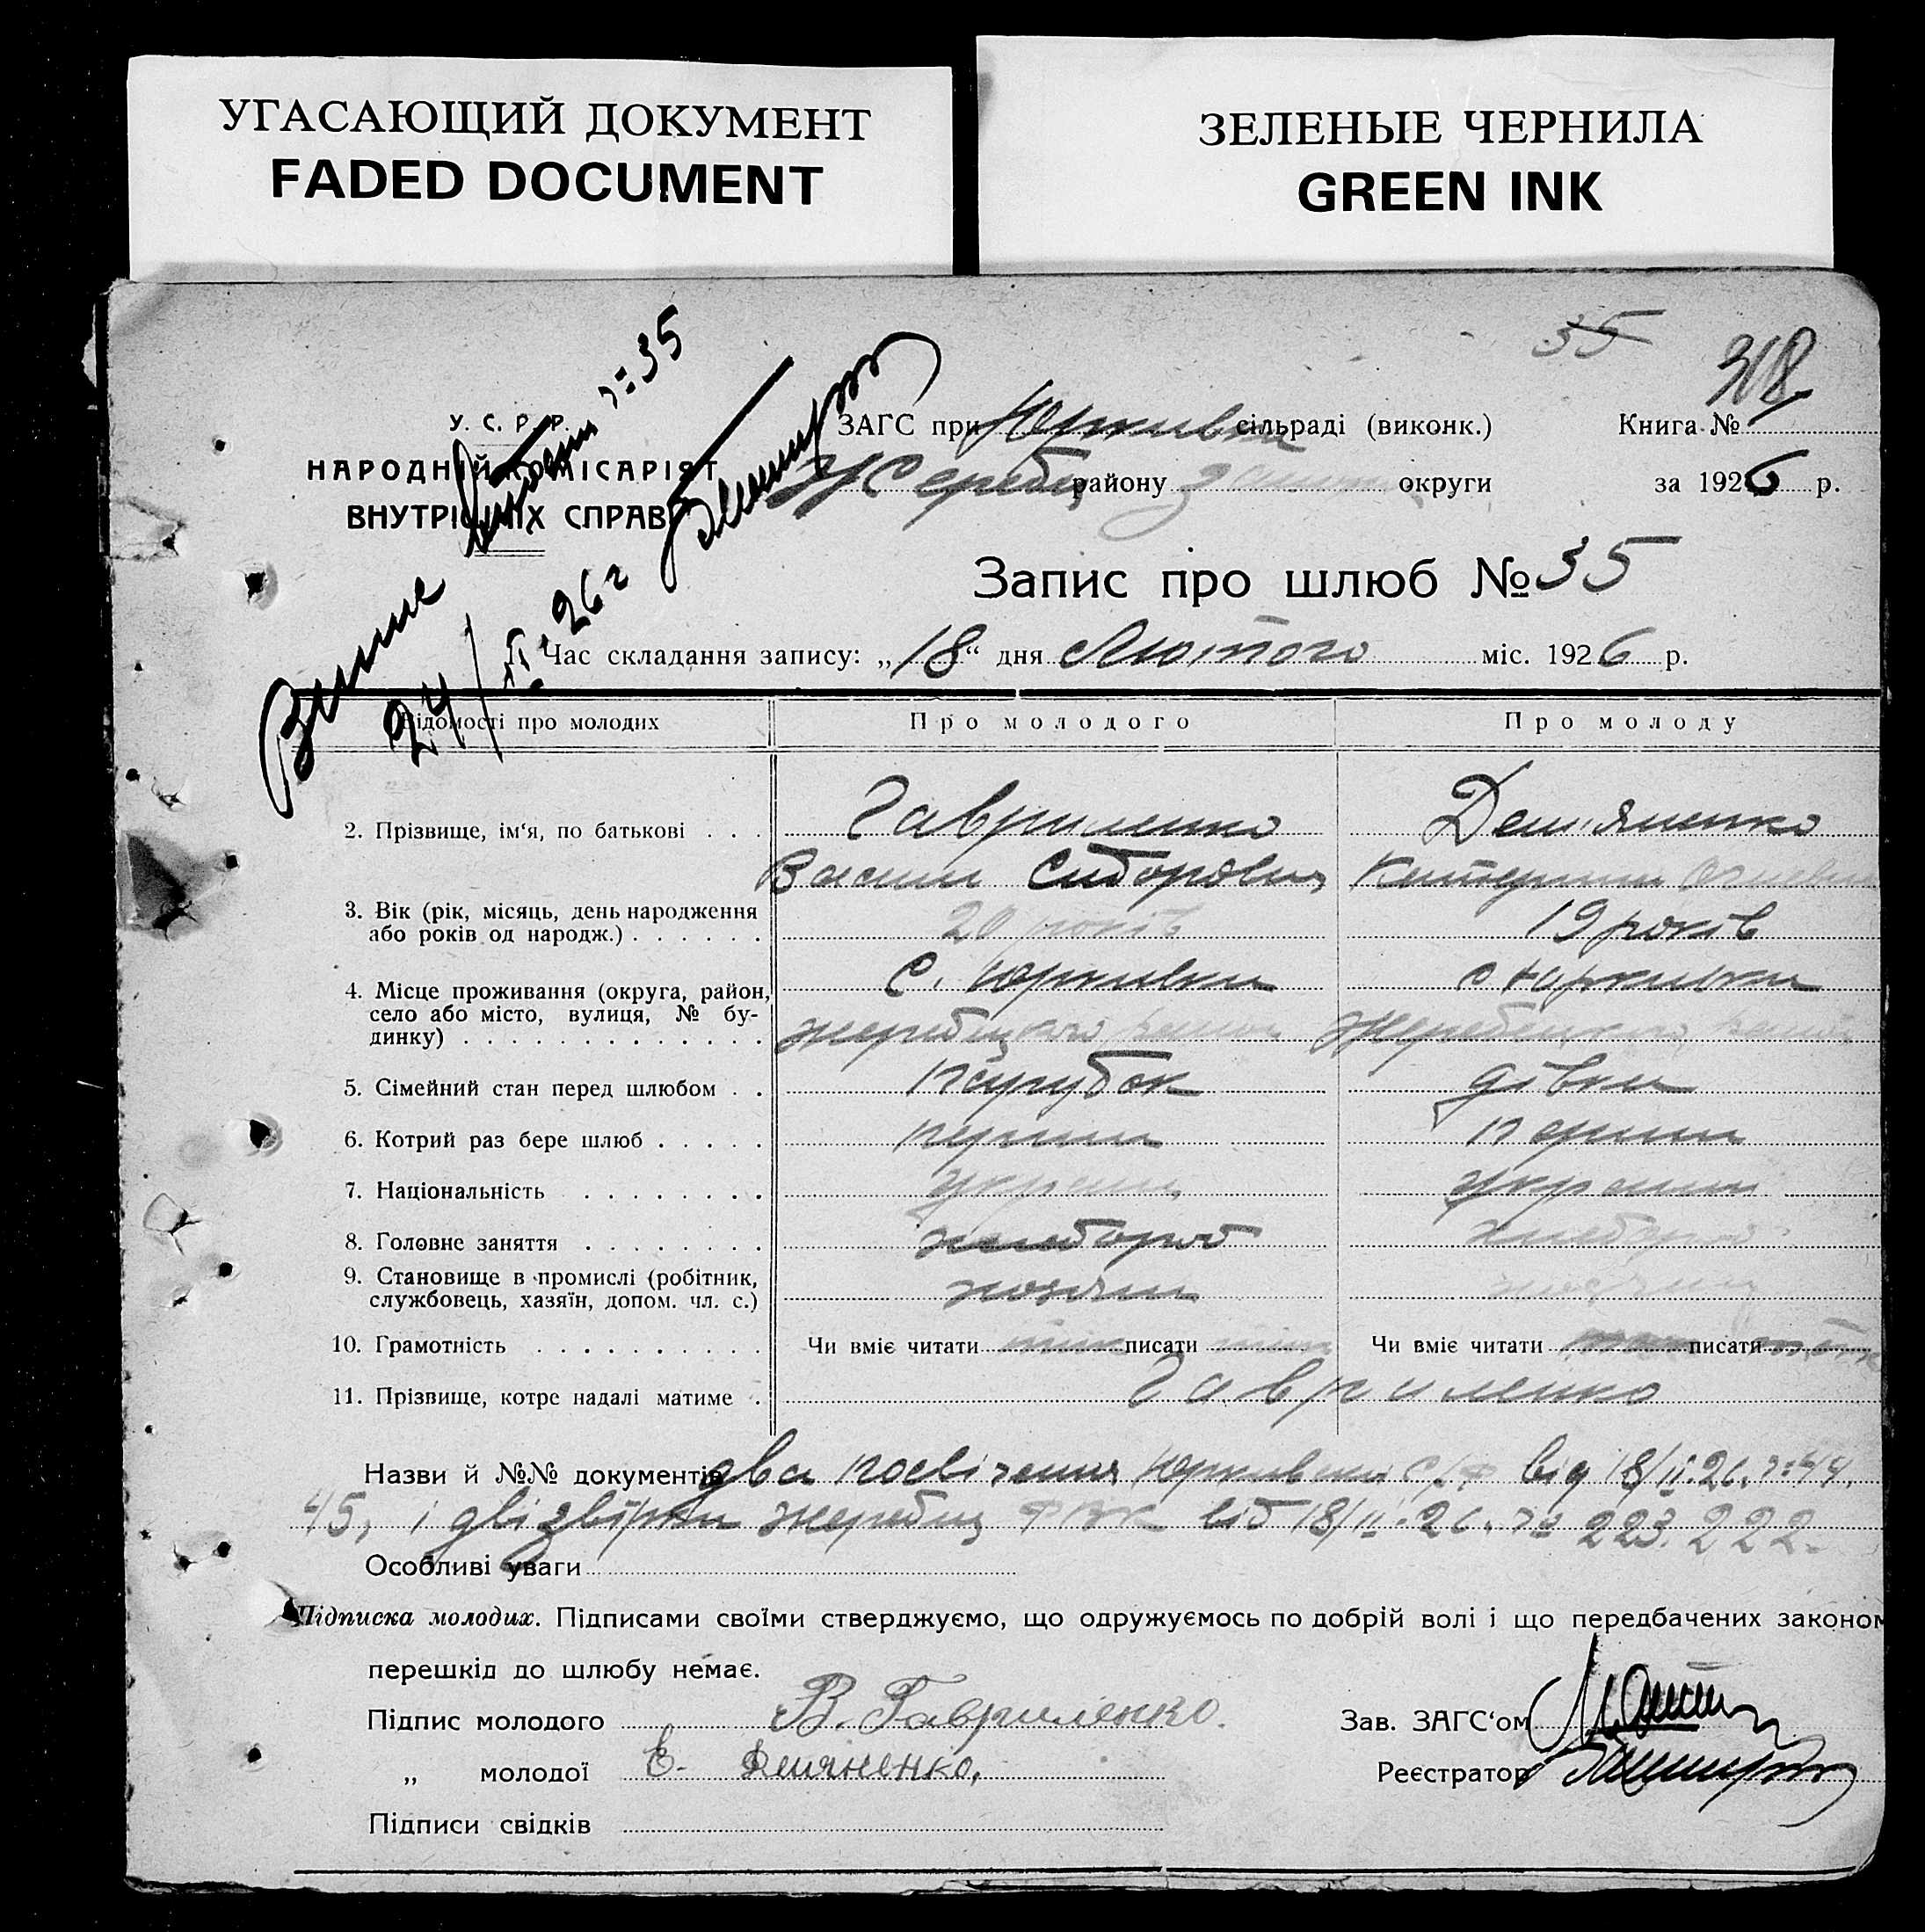 УГАСАЮЩИЙ ДОКУМЕНТ
FADED DOCUMENT
ЗЕЛЕНЫЕ ЧЕРНИЛА
GREEN INK
35
318
У. С. Р. Р.
НАРОДНІЙ КОМІСАРІЯТ
ВНУТРІШНІХ СПРАВ
№ 35
24/II 26 г
ЗАГС при Юрківка сільраді (виконк.) Книга №
Жеребец району округи за 1926 р.
Запис про шлюб № 35
1. Час складання запису: „18“ дня Лютого міс. 1926 р.
Відомості про молодих Про молодого Про молоду
2. Прізвище, ім‘я, по батькові Гавриленко Дем'яненко
Васил Сидорович Катерина
3. Вік (рік, місяць, день народження
або років од народж.) 20 років 19 років
4. Місце проживання (округа, район, с. Юрківка с Юрківка
село або місто, вулиця, № бу-
динку) жеребецкого району Жеребецкого району
5. Сімейний стан перед шлюбом парубок дівка
6. Котрий раз бере шлюб перший перший
7. Національність
8. Головне заняття хлебороб хлебороб
9. Становище в промислі (робітник,
службовець, хазяїн, допом. чл. с.) хозяин
10. Грамотність Чи вміє читати писати Чи вміє читати писати
11. Прізвище, котре надалі матиме Гавриленко
Назви й №№ документів два посвічення Юрківської с/р від 18/II.26. № 44.
45, і дві звірки жеребец РВК від 18/II.26. № 223. 222.
Особливі уваги
Підписка молодих. Підписами своїми стверджуємо, що одружуємось по добрій волі і що передбачених законом
перешкід до шлюбу немає.
Підпис молодого В. Гавриленко. Зав. ЗАГС‘ом
„ молодої Е. Демяненко, Реєстратор
Підписи свідків